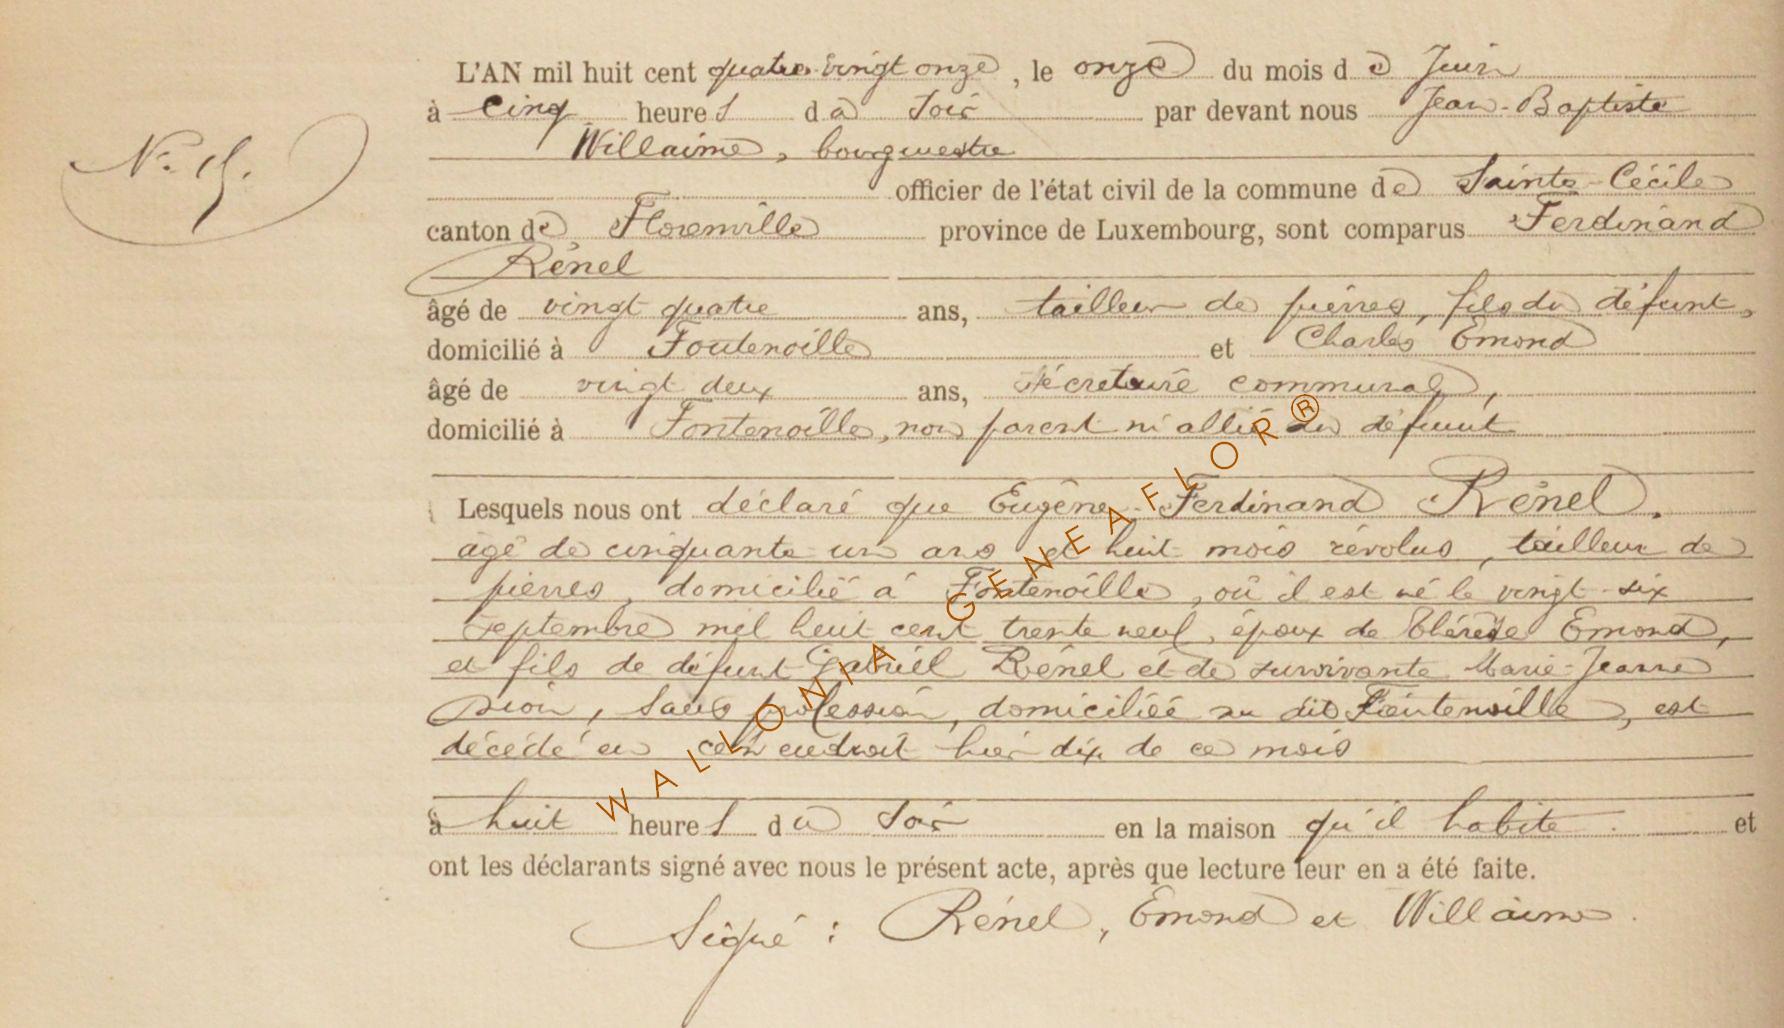 L'AN mil huit cent quatre-vingt onze, le onze du mois de Juin
à cinq heures du soir par devant nous Jean-Baptiste
Willaime, bourgmestre
N° 15.
officier de l'état civil de la commune de Sainte-Cécile
canton de Florenville province de Luxembourg, sont comparus Ferdinand
Rénel
âgé de vingt quatre ans, tailleur de pierres, fils du défunt,
domicilié à Fontenoille et Charles Emond
âgé de vingt deux ans, sécretaire communal,
domicilié à Fontenoille, non parent ni allié du défunt
Lesquels nous ont déclaré que Eugène-Ferdinand Rénel,
âgé de cinquante un ans et huit mois révolus, tailleur de
pierres, domicilié à Fontenoille, où il est né le vingt-six
septembre mil huit cent trente neuf, époux de Thérèse Emond,
et fils de défunt Gabriel Rénel et de survivante Marie-Jeanne
, sans profession, domiciliée au dit Fontenoille, est
décédé en cet endroit hier dix de ce mois
à huit heures du soir en la maison qu'il habite. et
ont les déclarants signé avec nous le présent acte, après que lecture leur en a été faite.
Signé : Rénel, Emond et Willaime.
WALLONIA GENEAFLOR®